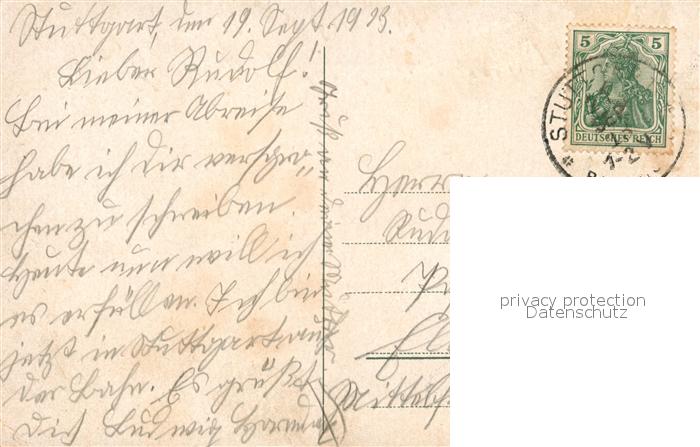 Stuttgart, den 19. Sept. 1913.
Lieber Rudolf!
Bei meiner Abreise
habe ich dir verspro-
chen zu schreiben.
Heute nun will ich
es erfüllen. Ich bin
jetzt in Stuttgart auf
der Bahn. Es grüßt
Dich Ludwig
Gruß an deine
5 5
DEUTSCHES REICH
STUTTG
1-2
Herrn
Rud
privacy protection
Datenschutz